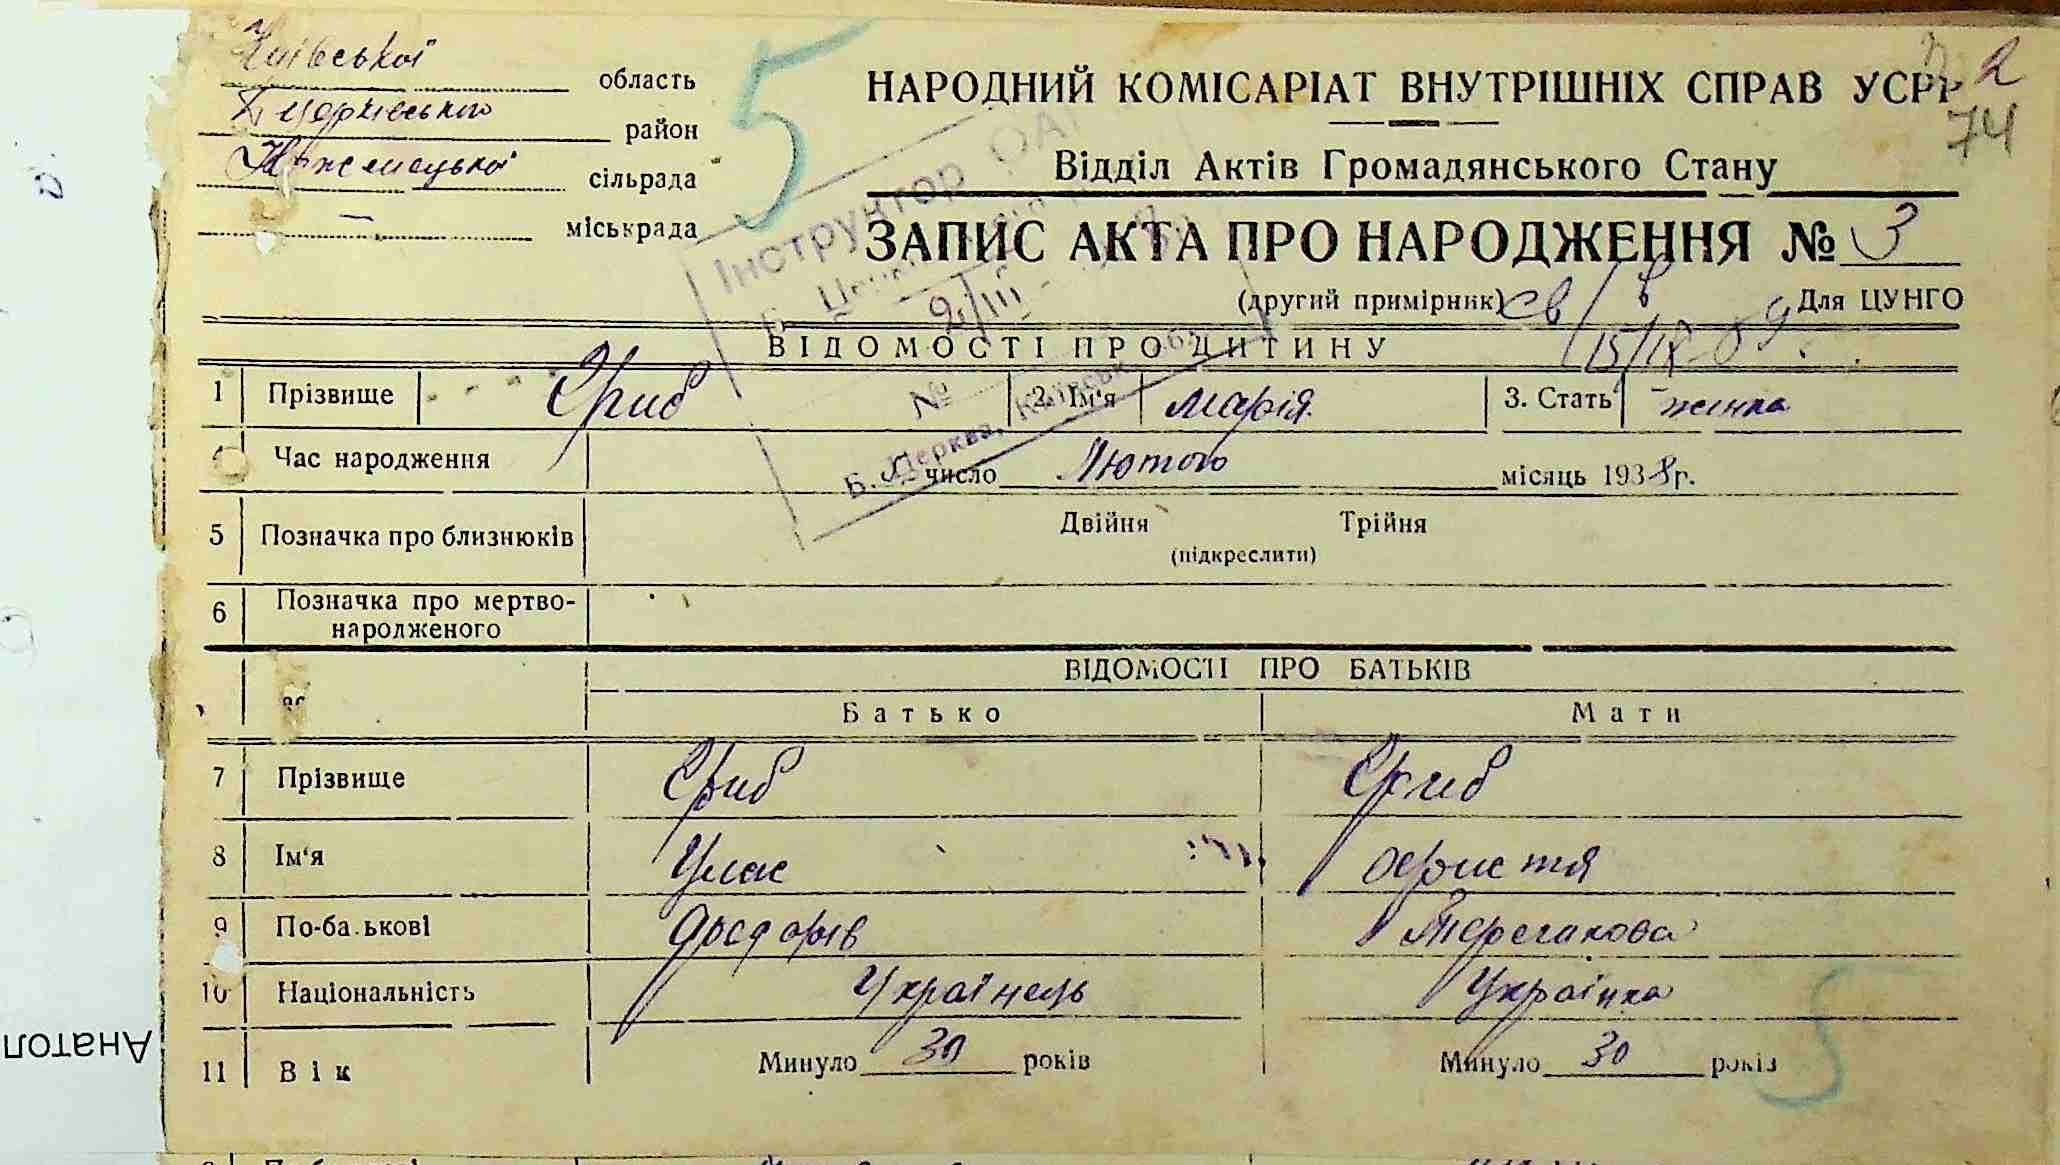 Київської область
Б Церківського район
сільрада
— міськрада
5
2
74
НАРОДНИЙ КОМІСАРІАТ ВНУТРІШНІХ СПРАВ УСРР
Відділ Актів Громадянського Стану
ЗАПИС АКТА ПРО НАРОДЖЕННЯ № 3
(другий примірник) Для ЦУНГО
Інструктор ОАГ
2/III
№
Б. Церква, Київськ. об
ВІДОМОСТІ ПРО ДИТИНУ
1 Прізвище Гриб 2. Ім'я Марія 3. Стать жінка
Час народження число Лютого місяць 1938 г.
5 Позначка про близнюків Двійня Трійня
(підкреслити)
6 Позначка про мертво-
народженого
ВІДОМОСТІ ПРО БАТЬКІВ
Батько Мати
7 Прізвище Гриб Гриб
8 Ім'я Улас Христя
9 По-ба ькові Федорів
10 Національність Українець Українка
11 Вік Минуло 30 років Минуло 30 років
Анатол